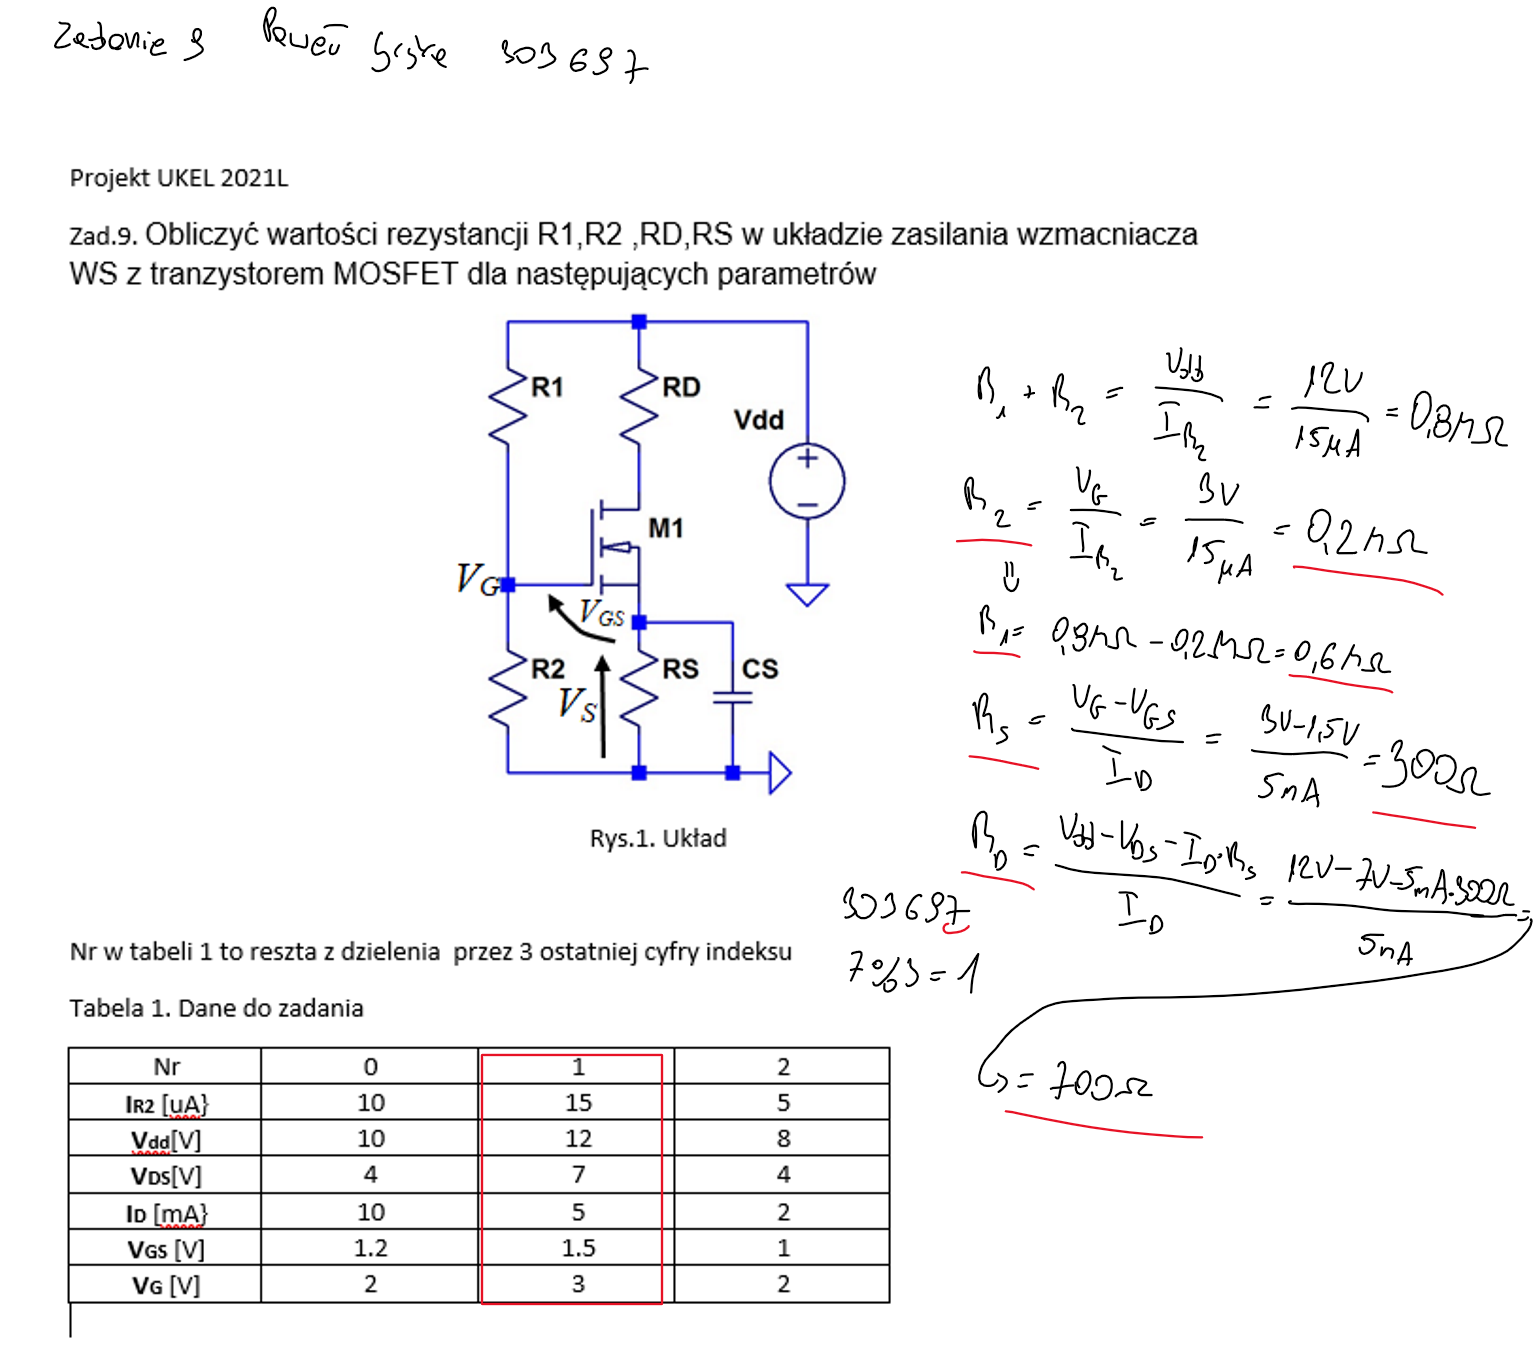 Zadanie 9 Paweł 303697
Projekt UKEL 2021L
Zad.9. Obliczyć wartości rezystancji R1,R2 ,RD,RS w układzie zasilania wzmacniacza
WS z tranzystorem MOSFET dla następujących parametrów
R1
RD
Vdd
M1
VG
VGS
R2
RS
CS
VS
Rys.1. Układ
R₁ + R₂ = Vdd / I_R₂ = 12V / 15μA = 0,8MΩ
R₂ = V_G / I_R₂ = 3V / 15μA = 0,2MΩ
⇓
R₁ = 0,8MΩ - 0,2MΩ = 0,6MΩ
R_S = V_G - V_GS / I_D = 3V - 1,5V / 5mA = 300Ω
R_D = Vdd - V_DS - I_D·R_S / I_D = 12V - 7V - 5mA·300Ω / 5mA =
↳ = 700Ω
303697
7%3 = 1
Nr w tabeli 1 to reszta z dzielenia przez 3 ostatniej cyfry indeksu
Tabela 1. Dane do zadania
Nr 0 1 2
IR2 [uA} 10 15 5
Vdd[V] 10 12 8
VDS[V] 4 7 4
ID [mA} 10 5 2
VGS [V] 1.2 1.5 1
VG [V] 2 3 2